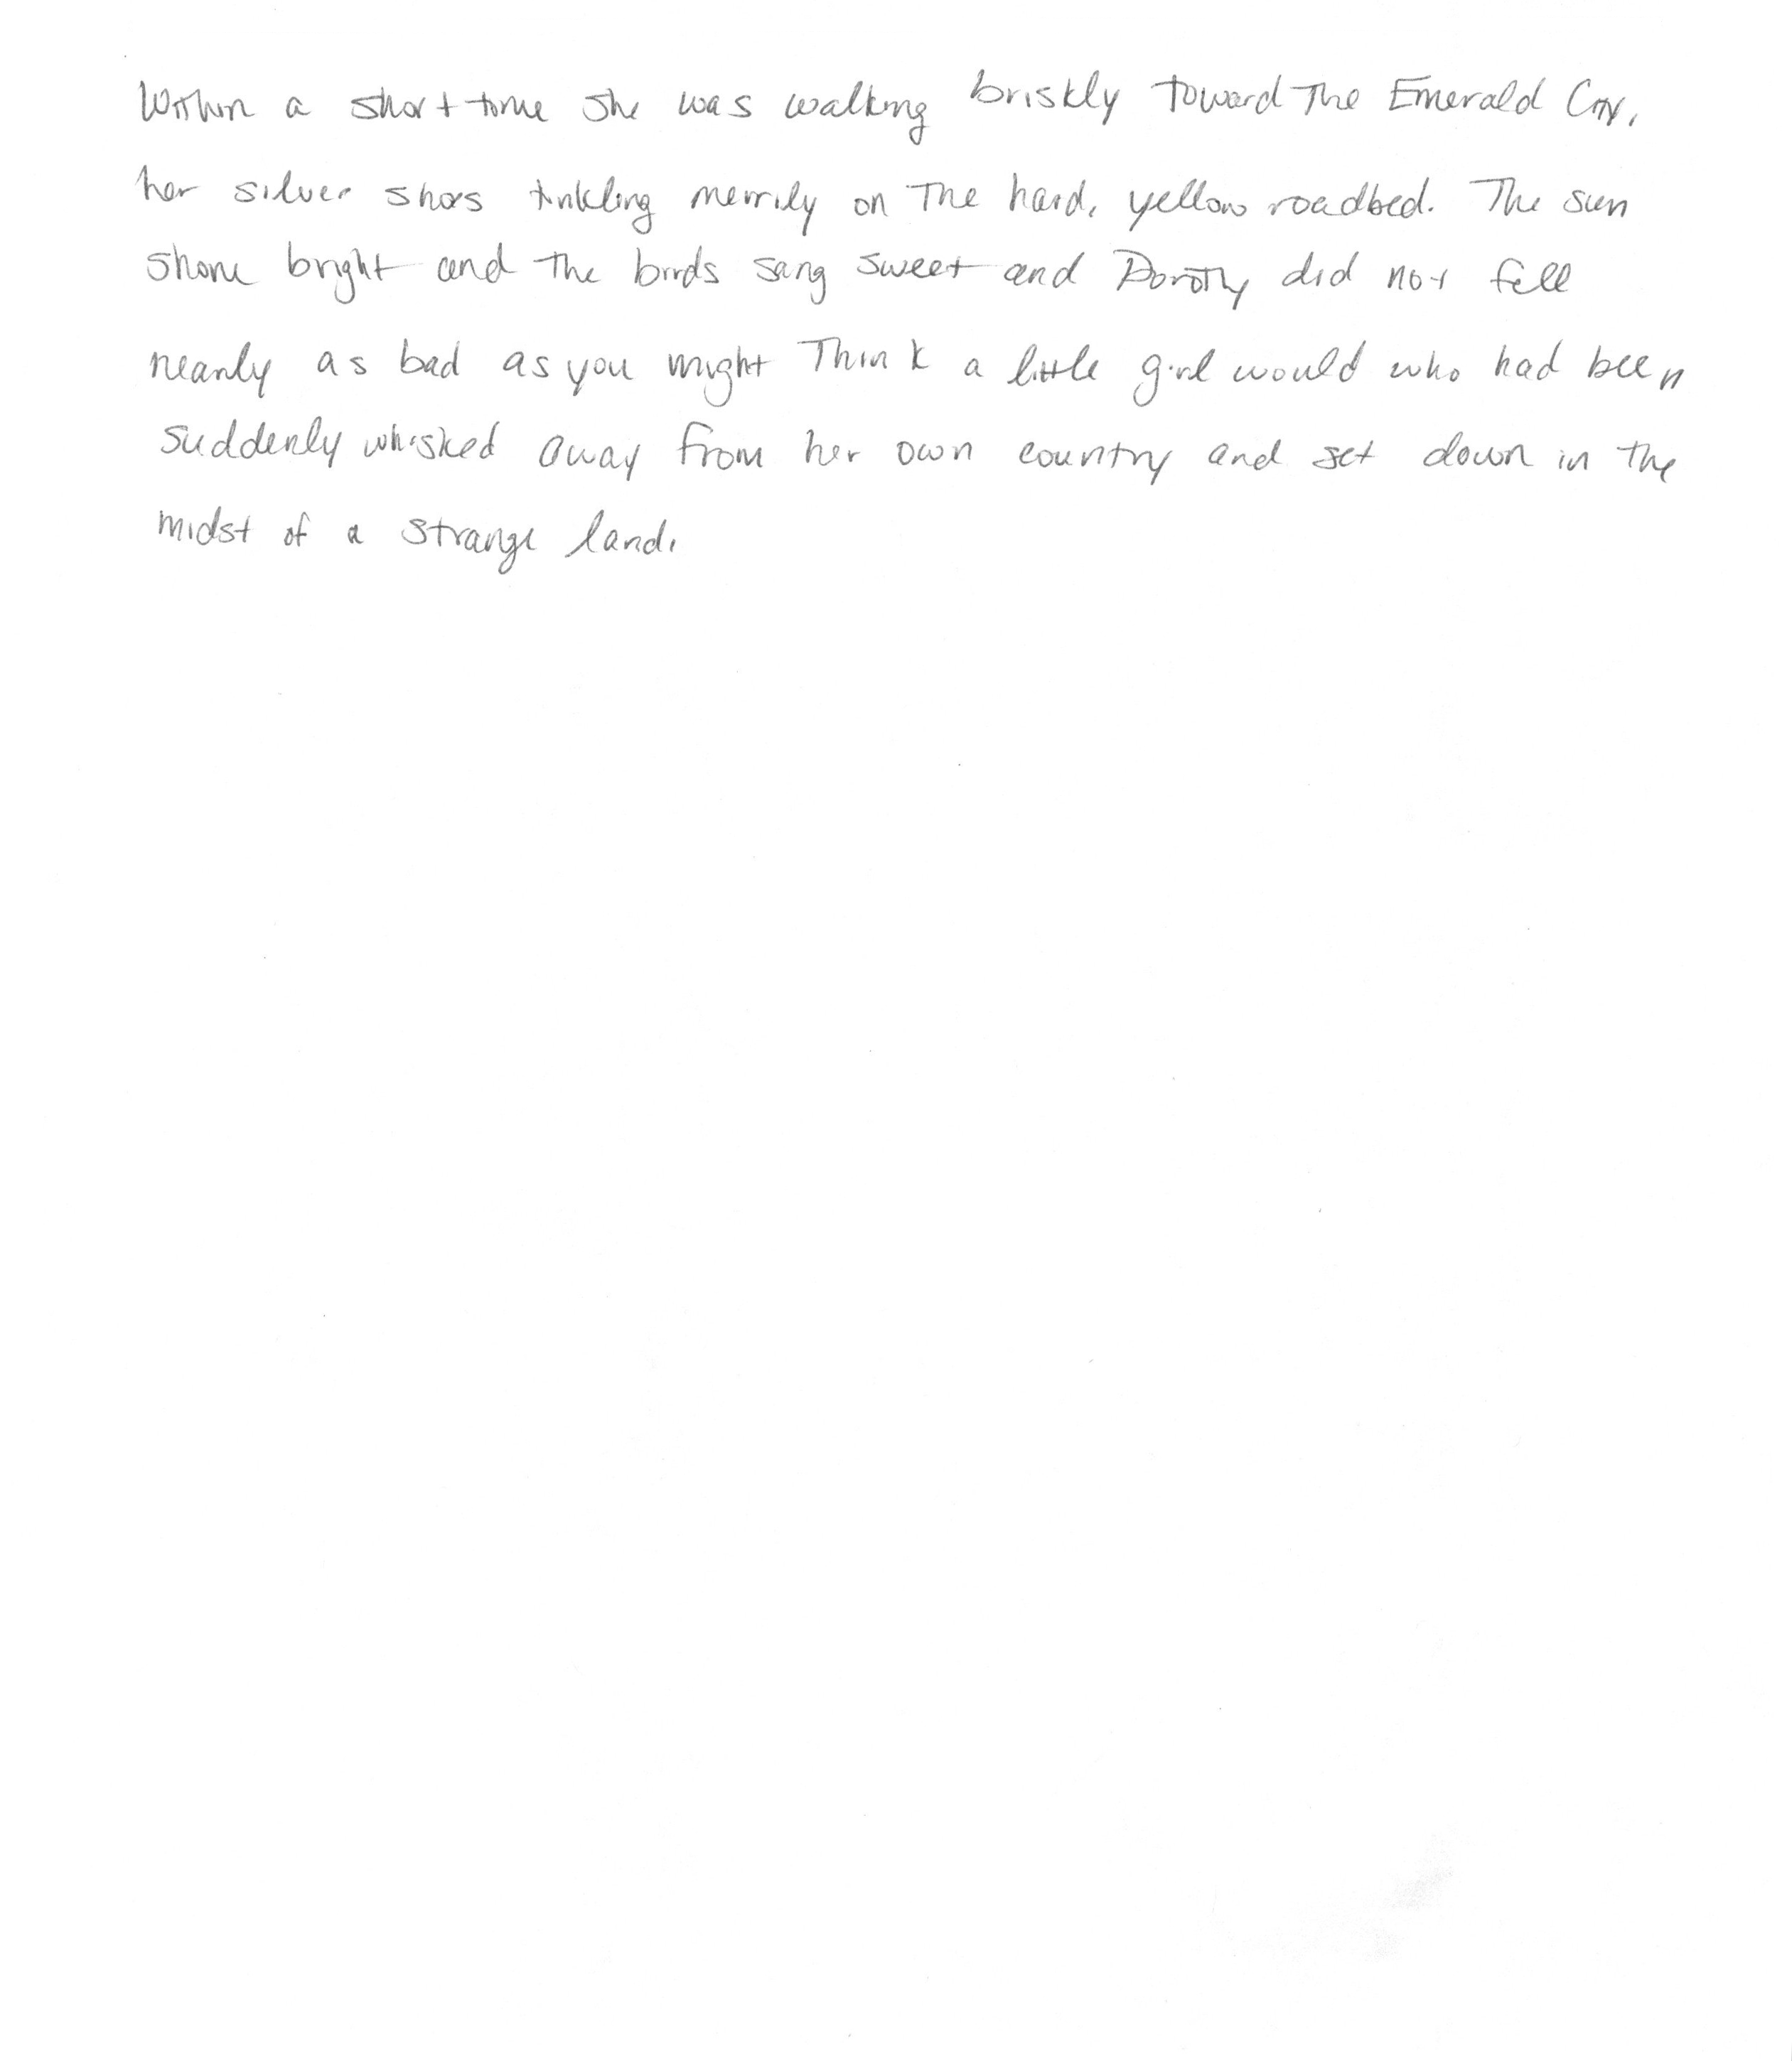 Within a short time she was walking briskly toward The Emerald City,
her silver shoes tinkling merrily on The hard, yellow roadbed. The sun
shone bright and the birds sang sweet and Dorothy did not fell
nearly as bad as you might Think a little girl would who had been
suddenly whisked away from her own country and set down in the
midst of a strange land.